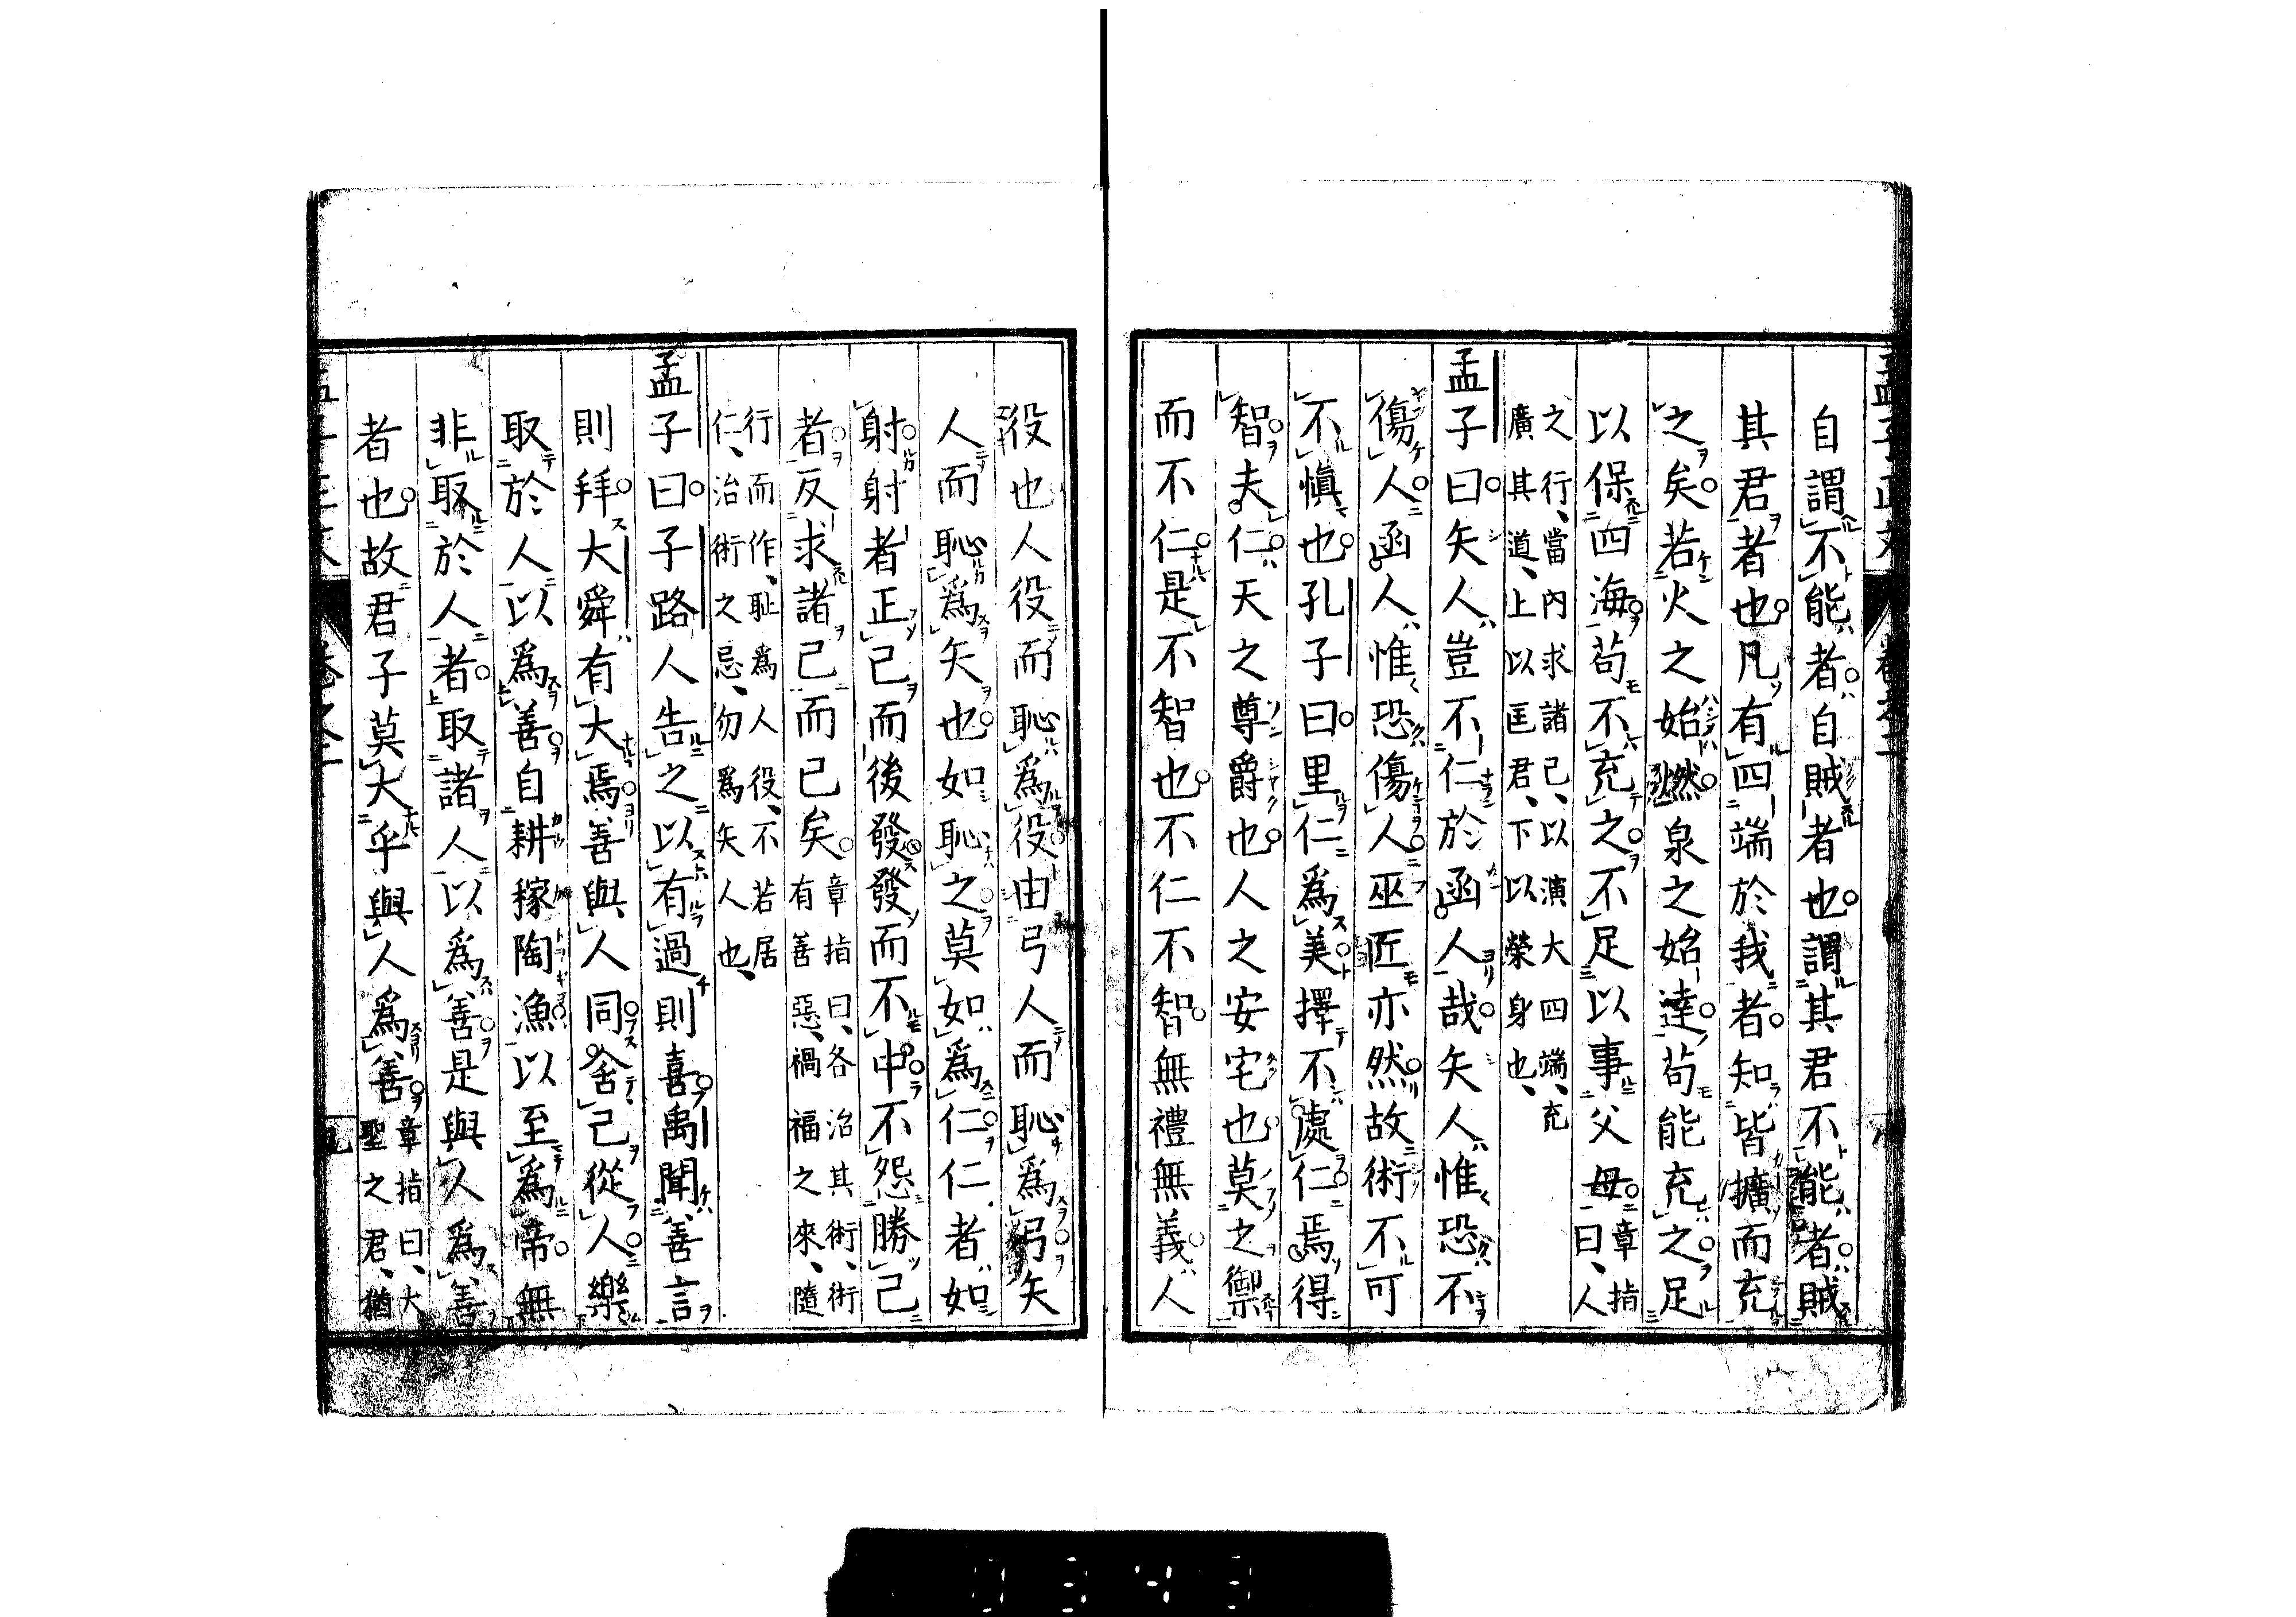 自謂不能者自賊者也謂其君不能者賊
其君者也凡有四端於我者知皆擴而充
之矣若火之始燃泉之始達苟能充之足
以保四海苟不充之不足以事父母章指曰、人
之行、當內求諸己、以演大四端、充
廣其道、上以匡君、下以榮身也、
孟子曰矢人豈不仁於函人哉矢人惟恐不
傷人函人惟恐傷人巫匠亦然故術不可
不愼也孔子曰里仁爲美擇不處仁焉得
智夫仁天之尊爵也人之安宅也莫之禦
而不仁是不智也不仁不智無禮無義人
役也人役而恥爲役由弓人而恥爲弓矢
人而恥爲矢也如恥之莫如爲仁仁者如
射射者正己而後發發而不中不怨勝己
者反求諸己而已矣章指曰、各治其術、術
有善惡、禍福之來、隨
行而作、恥爲人役、不若居
仁、治術之忌、勿爲矢人也、
孟子曰子路人告之以有過則喜禹聞善言
則拜大舜有大焉善與人同舍己從人樂
取於人以爲善自耕稼陶漁以至爲帝無
非取於人者取諸人以爲善是與人爲善
者也故君子莫大乎與人爲善章指曰、大
聖之君、猶